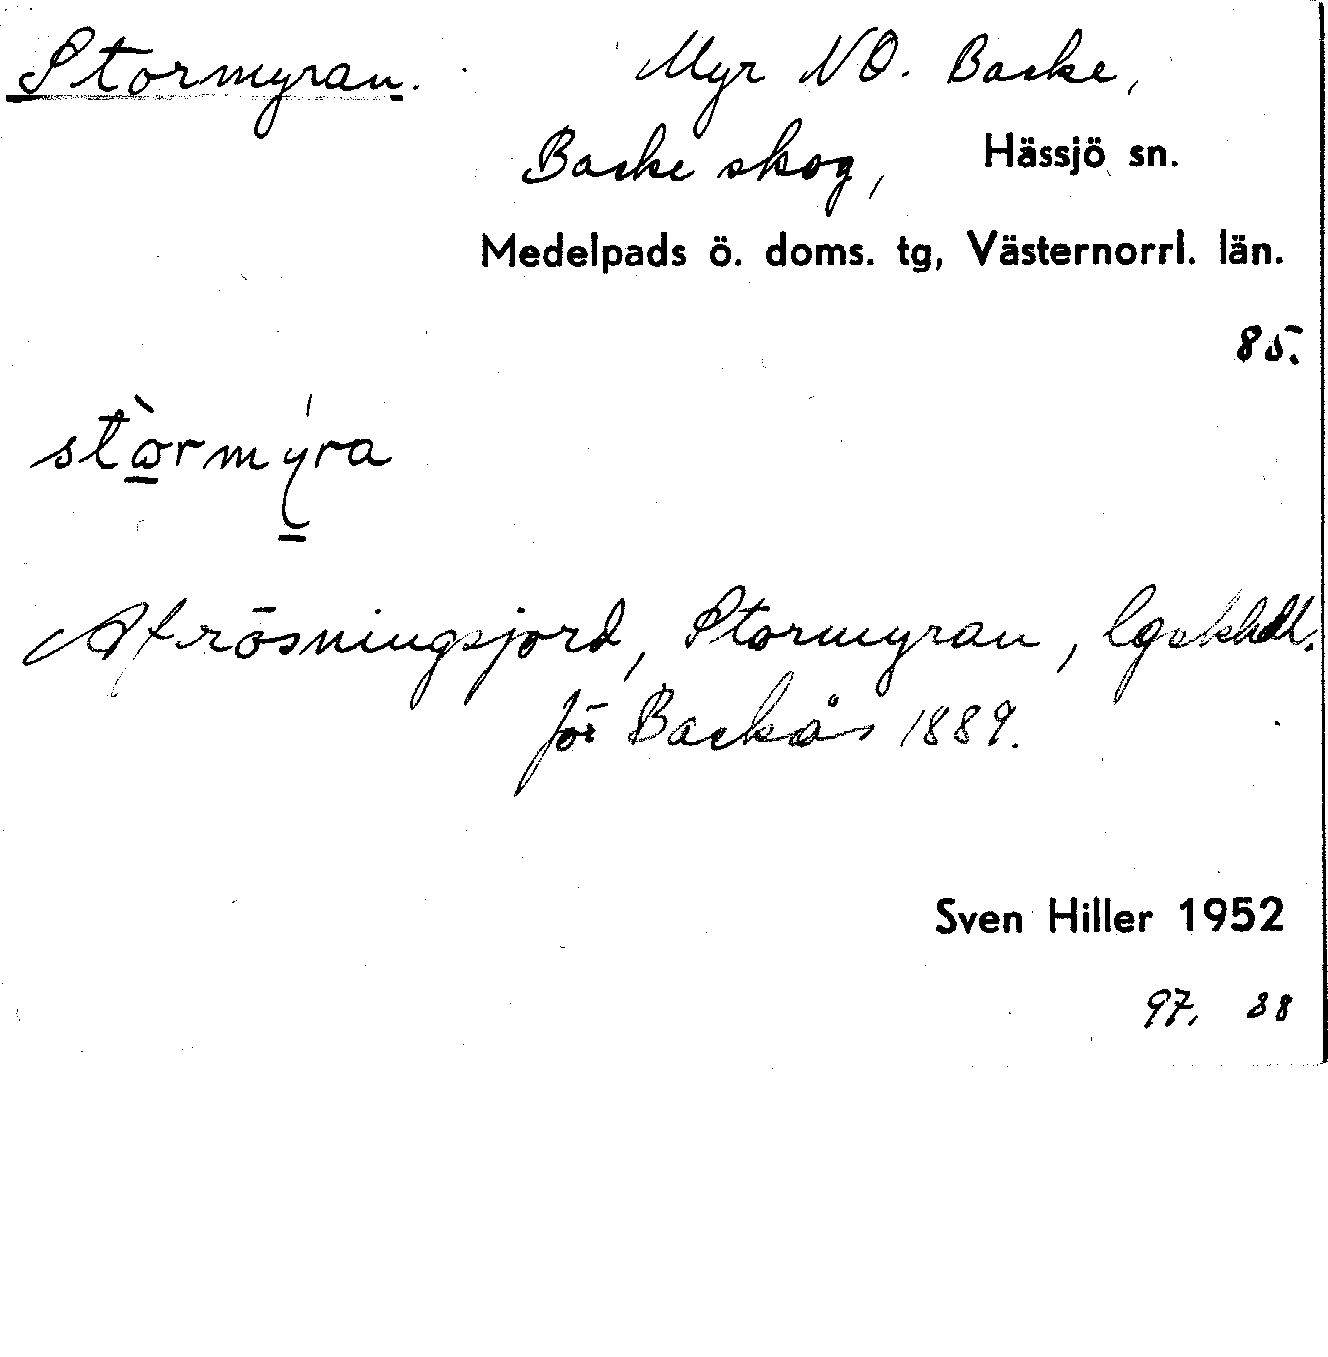 Stormyran. Myr NO. Backe,
Backe skog, Hässjö sn.
Medelpads ö. doms. tg, Västernorrl. län.
85.
stormyra
Afrösningsjord, Stormyran,
för Backås 1889.
Sven Hiller 1952
97. 38